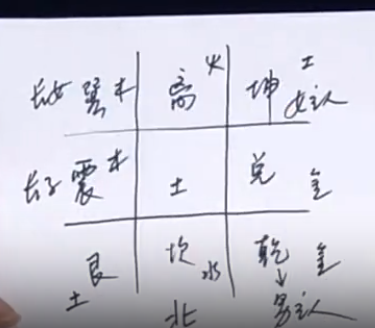 长女 巽 木 离 火 坤 土 女主人
长子 震 木 土 兑 金
艮 土 坎 水 乾 金
北 男主人